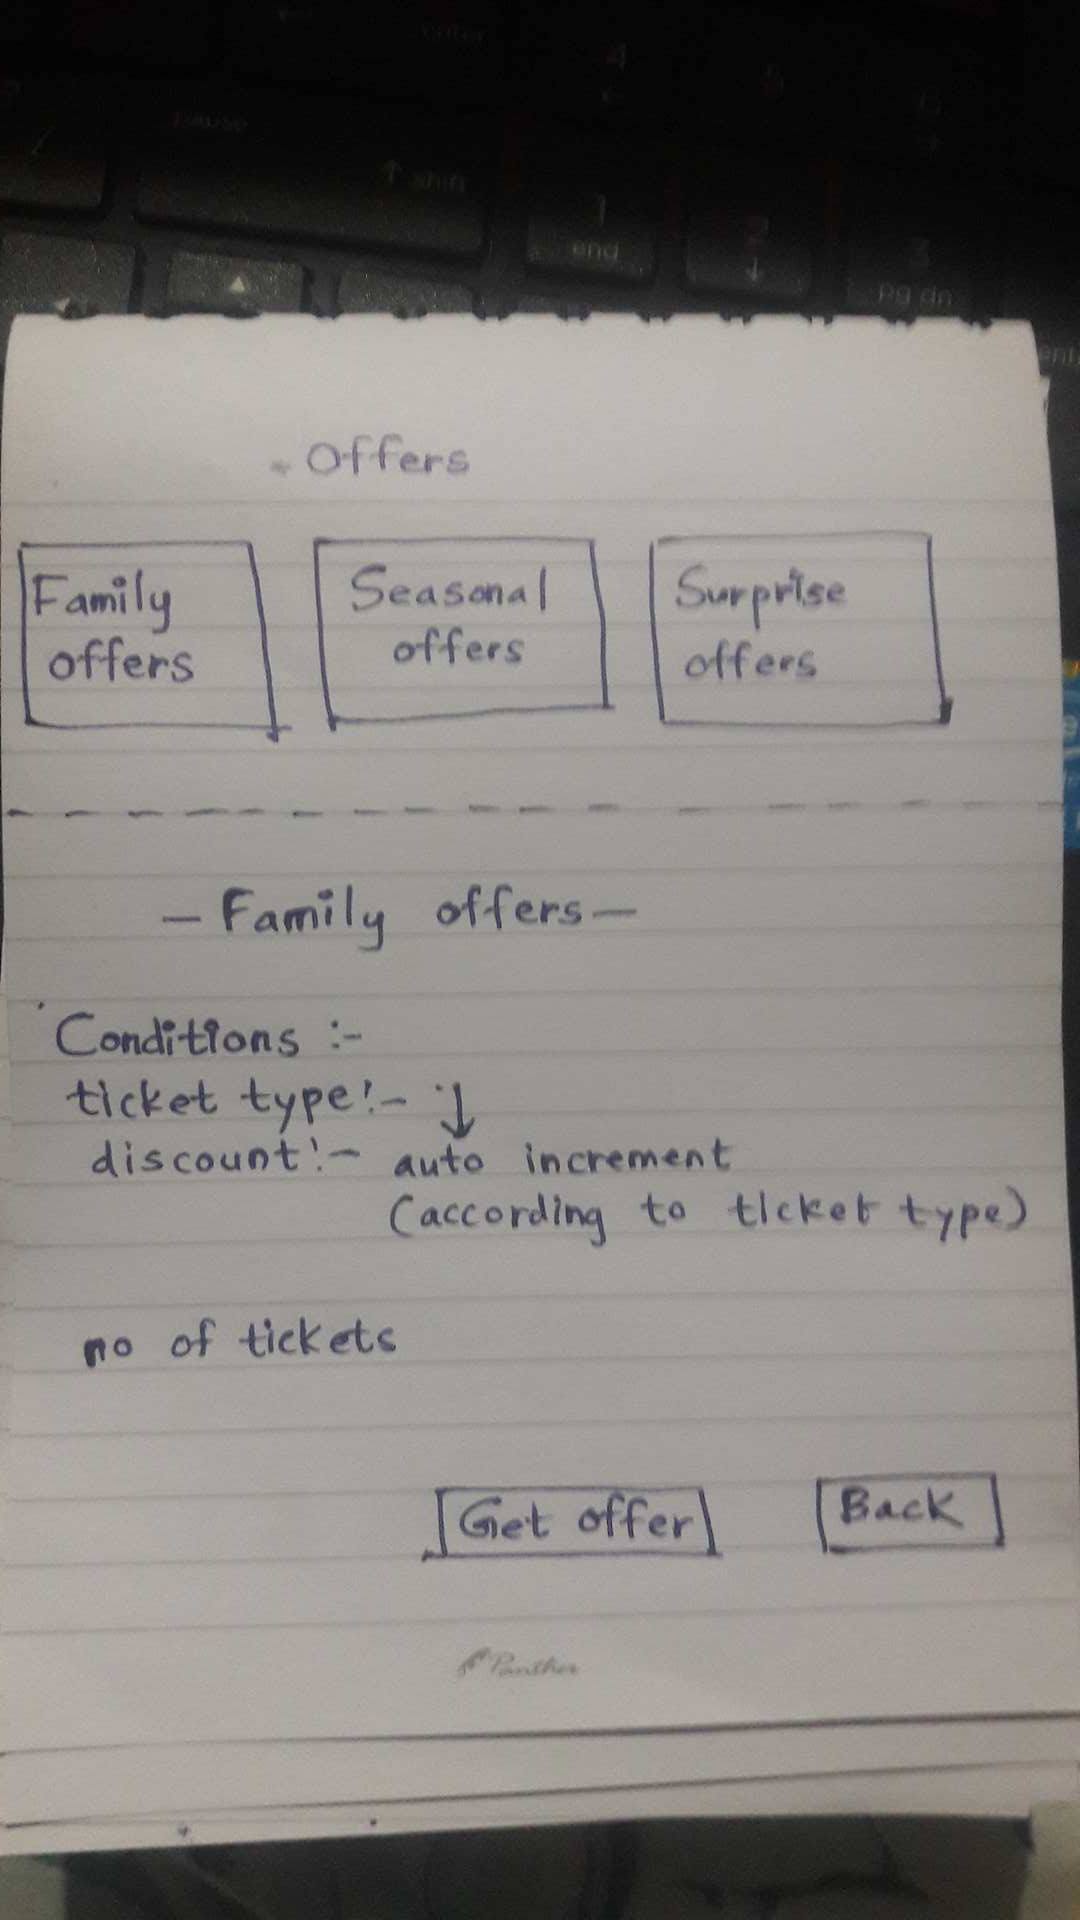 enter
4
5
6
pause
↑ shift
1
end
2
↓
3
pg dn
- Offers
Family
offers
Seasonal
offers
Surprise
offers
- Family offers -
Conditions :-
ticket type :- ↓
discount :- auto increment
(according to ticket type)
no of tickets
Get offer
Back
Panther